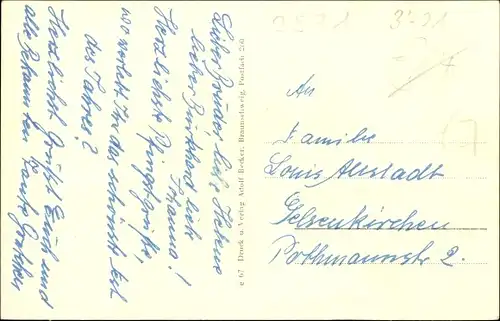 Lieber Bruder liebe Helene
lieber Burkhard und
Johanna!
Herzlichste Pfingstgrüße,
wo verlebt Ihr das schönste Fest
des Jahres?
Herzlichst grüßt Euch und
alle Bekannten Tante Gretchen
e 67 Druck u. Verlag Adolf Becker, Braunschweig, Postfach 260
3'-28
An
Familie
Louis Altstadt
Gelsenkirchen
Pothmannstr 2.